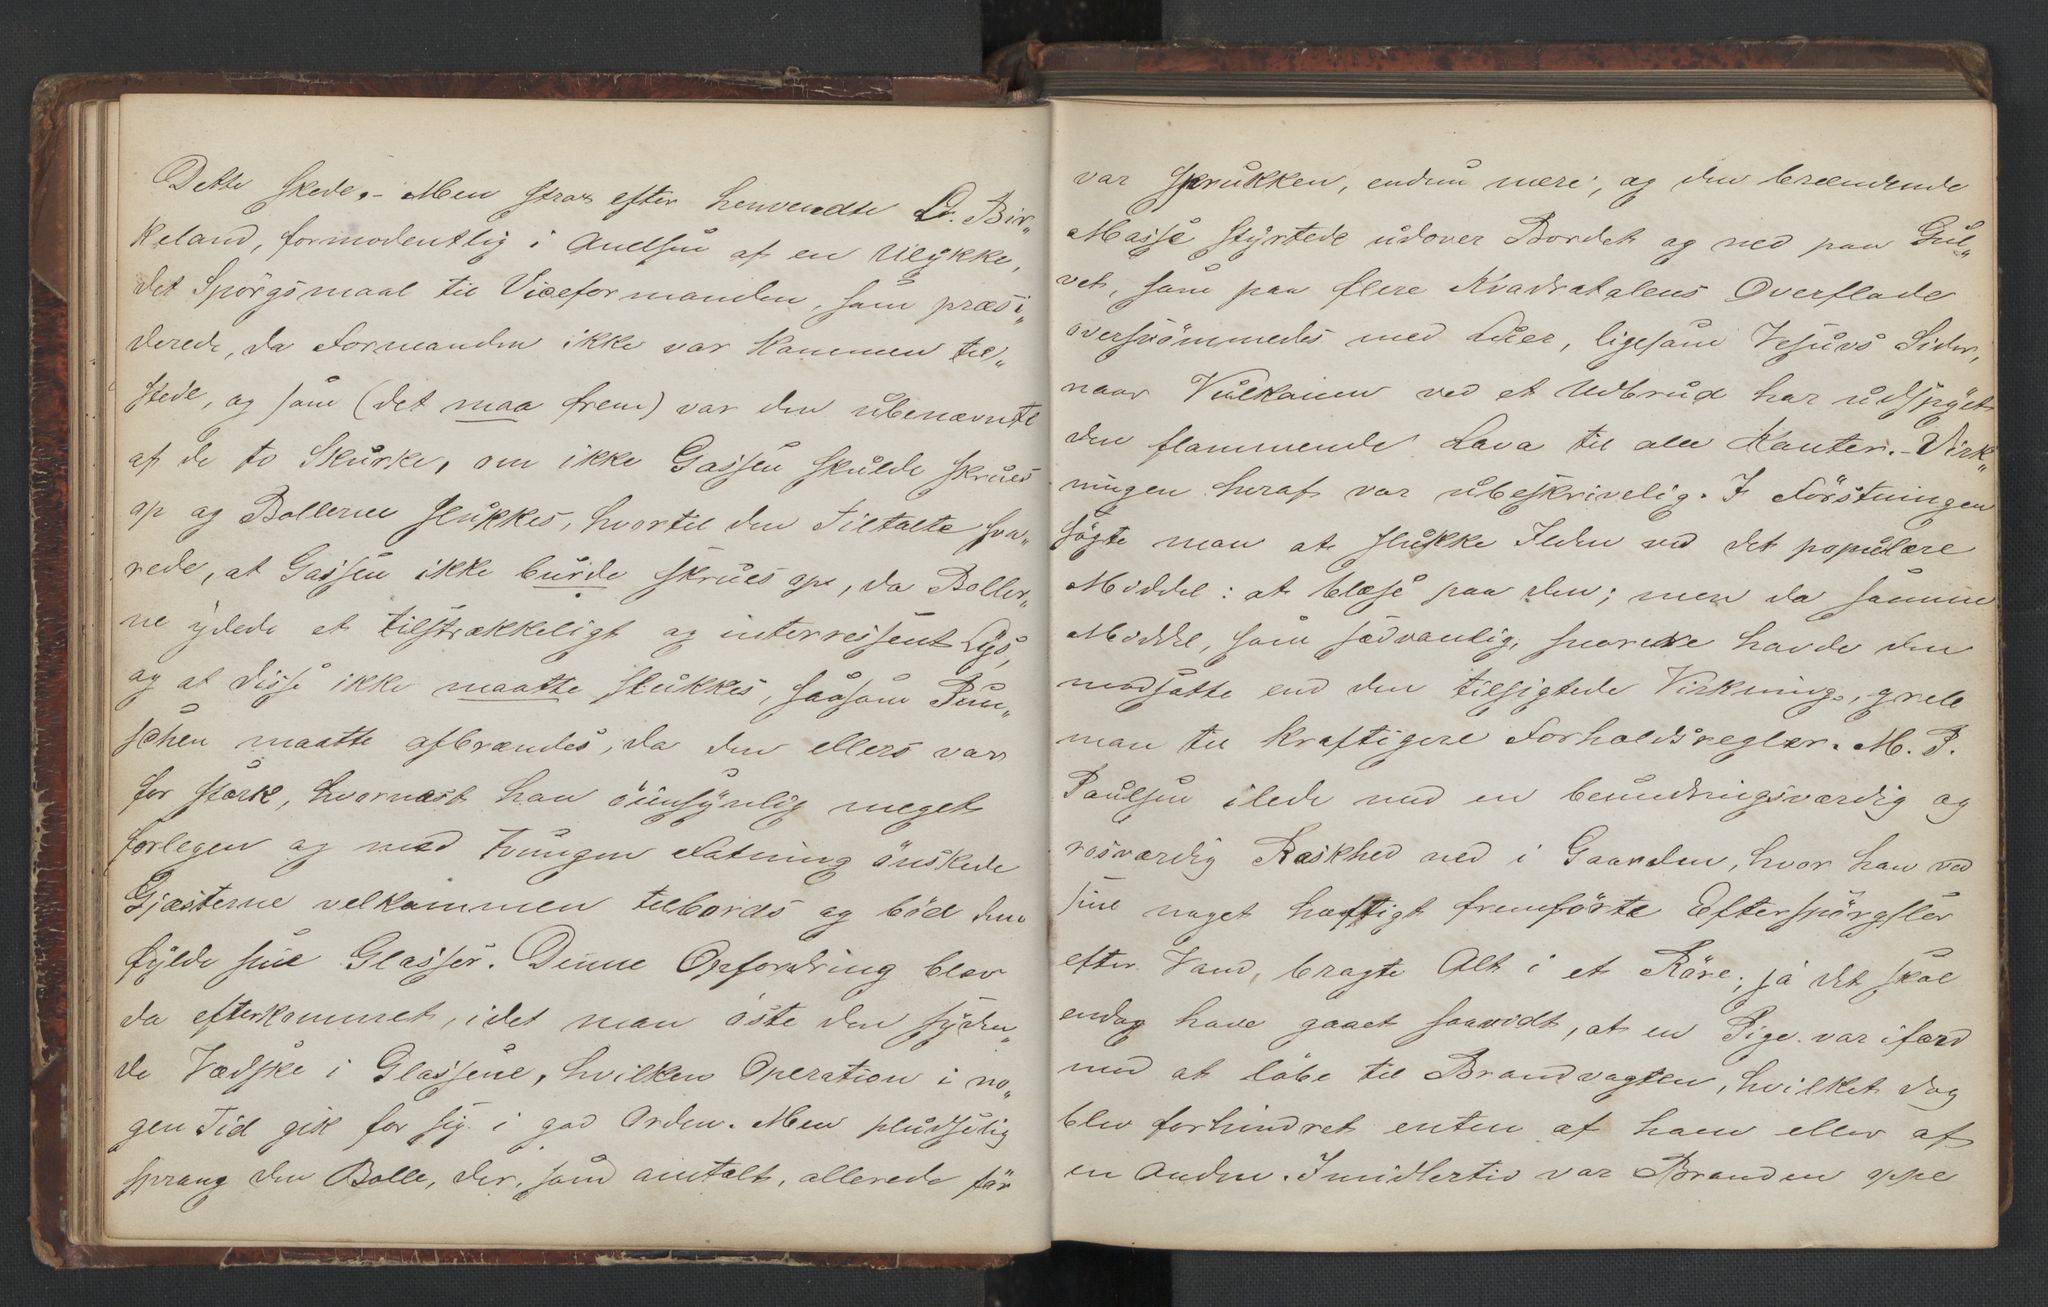 Dette skede. – Men strax efter henvendte Dr. Bir„
keland, formodentlig i Anelsen af en Ulykke,
det Spörgsmaal til Viceformanden, som præsi„
derede, da Formanden ikke var kommen til„
stede, og som (det maa frem) var den ubenævnte
af de to Skurke, om ikke Gassen skulde skrues
op og Bollerne slukkes, hvortil den Tiltalte sva„
rede, at Gassen ikke burde skrues op, da Boller„
ne ydede et tilstrækkeligt og interressent Lys,
og at disse ikke maatte slukkes, saasom Pun„
schen maatte afbrændes, da den ellers var
for stærk, hvornæst han öiensynlig meget
forlegen og med tvungen Fatning önskede
Gjæsterne velkommen tilbords og böd dem
fylde sine Glasser. Denne Opfordring blev
da efterkommet, idet man öste den syden„
de Vædske i Glassene, hvilken Operation i no„
gen Tid gik for sig i god Orden. Men pludselig
sprang den Bolle, der, som antalt, allerede för
var sprukken, endnu mere, og den brændende
Masse styrtede udover Bordet og ned paa Gul„
vet, som paa flere Kvadratalens Overflade
oversvömmedes med Luer, ligesom Vesuvs Sider,
naar Vulkanen ved et Udbrud har udspyet
den flammende Lava til alle Kanter. – Virk„
ningen heraf var ubeskrivelig. I Förstningen
sögte man at slukke Ilden ved det populære
Middel: at blæse paa den; men da samme
Middel, som sædvanlig, snarere havde den
modsatte end den tilsigtede Virkning, greb
man til kraftigere Forholdsregler. M. P.
Paulsen ilede med en beundringsværdig og
rosværdig Raskhed ned i Gaarden, hvor han ved
sine noget hæftigt fremförte Efterspörgsler
efter Vand, bragte Alt i et Röre; ja det skal
endog have gaaet saavidt, at en Pige var ifærd
med at löbe til Brandvagten, hvilket dog
blev forhindret enten af ham eller af
en Anden. Imidlertid var Branden oppe